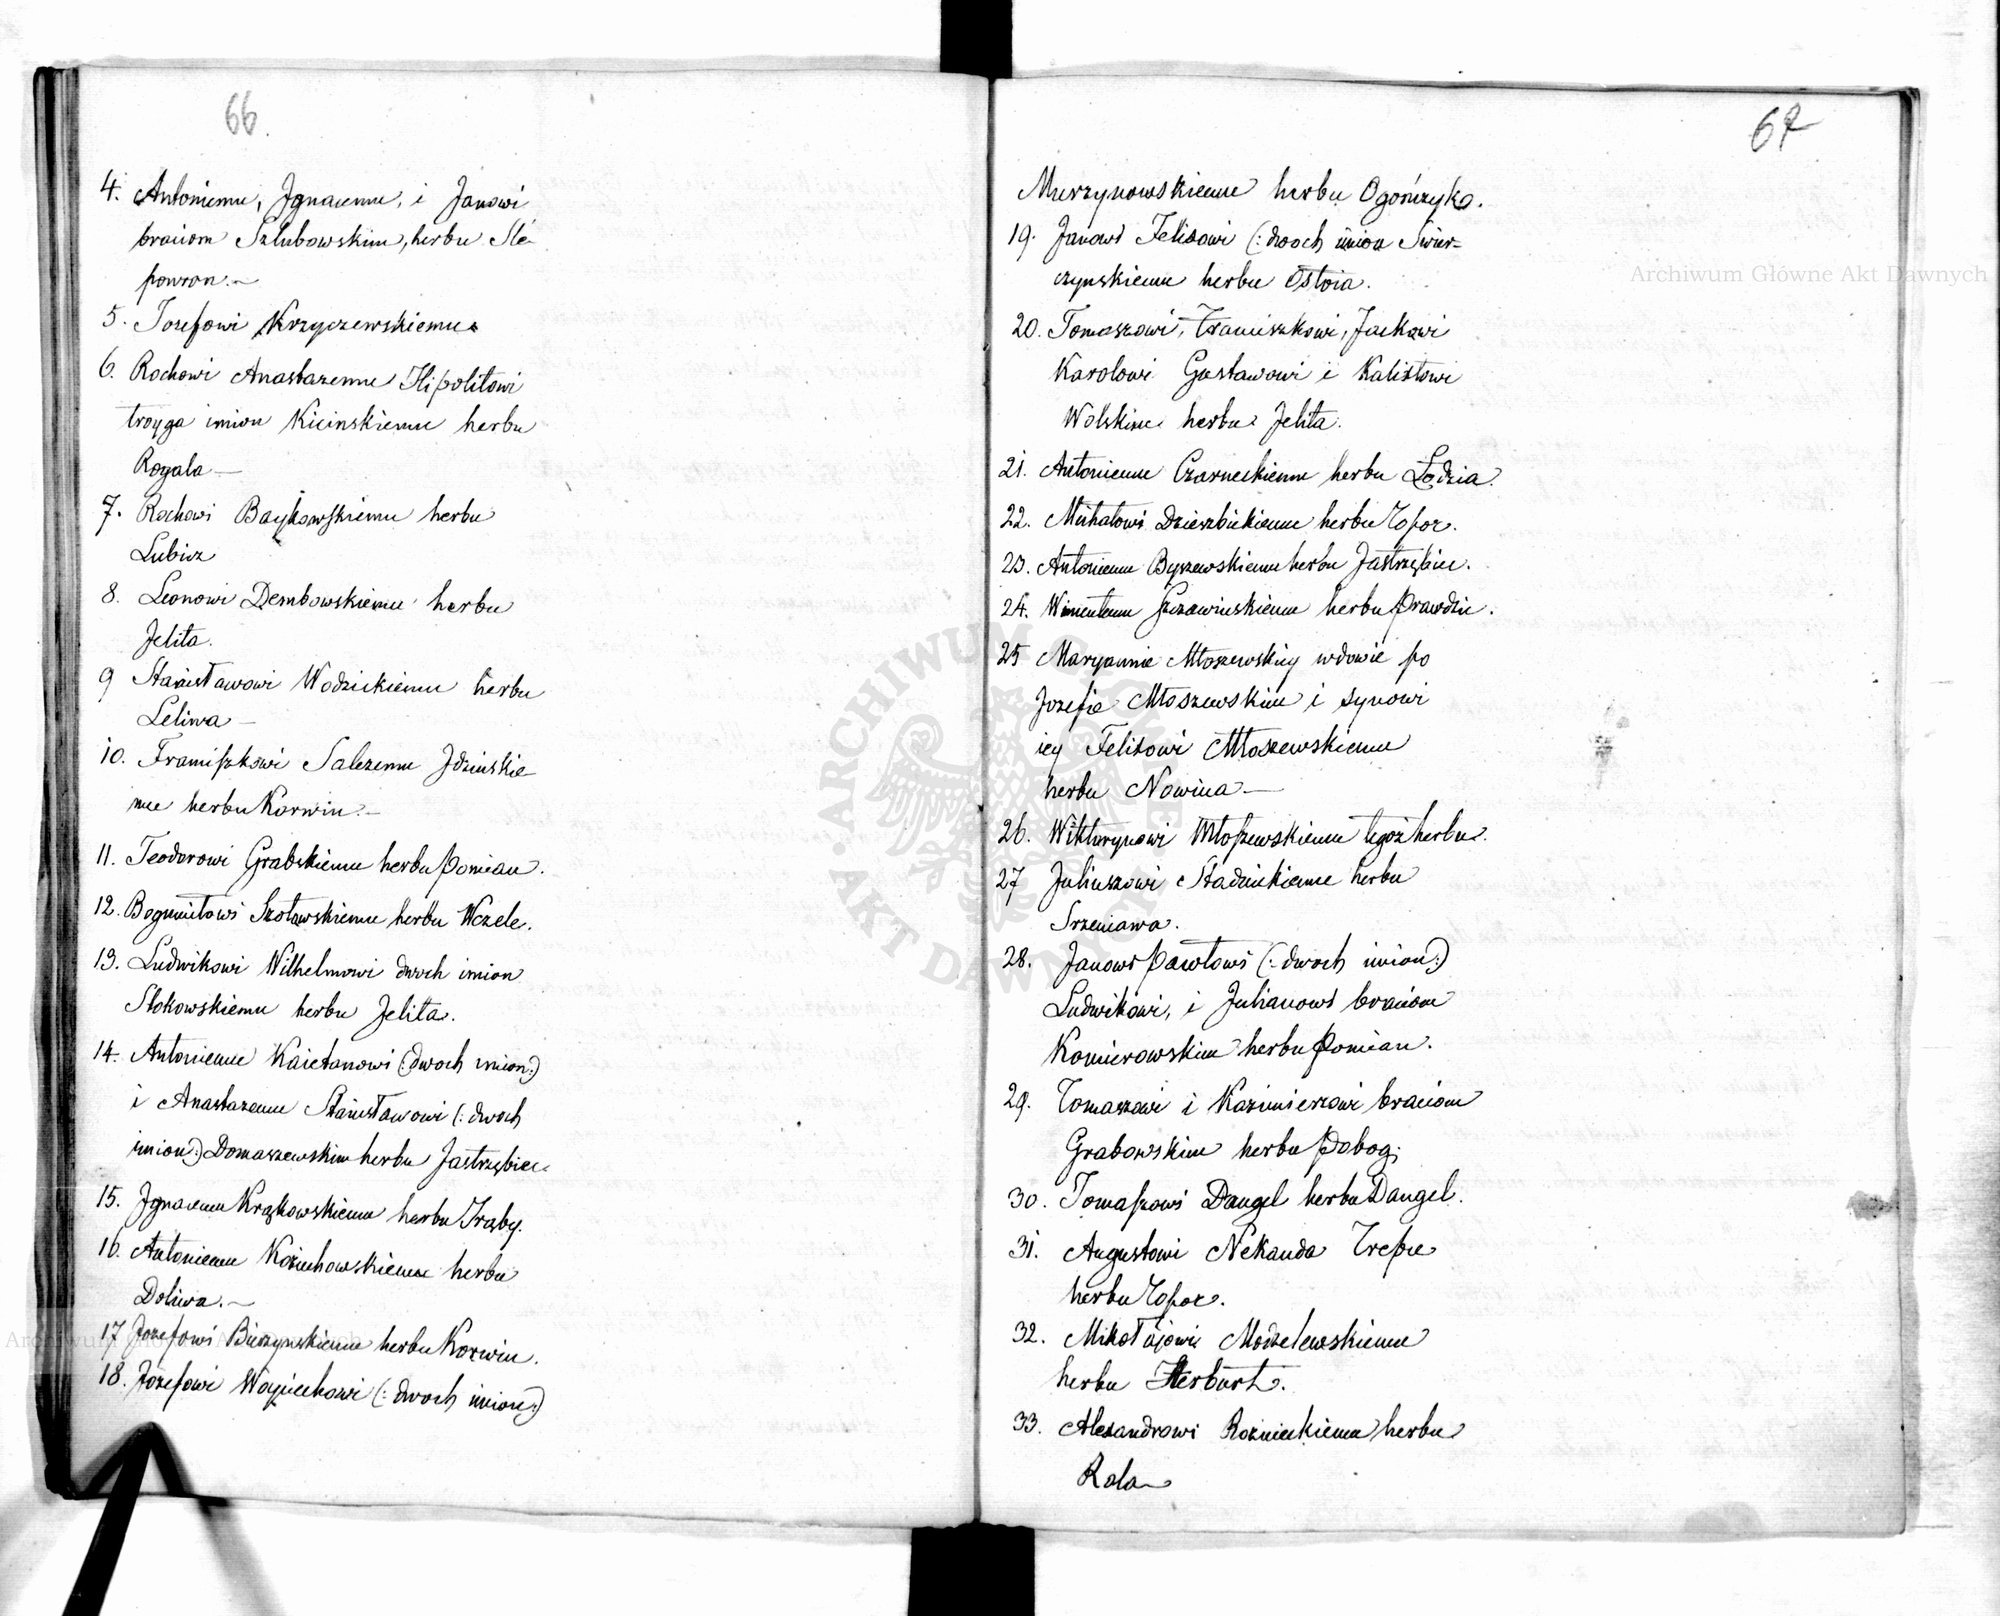 66.
4. Antoniemu, Jgnacemu, i Janowi
braciom Szlubowskim, herbu Sle-
powron.—
5. Jozefowi Krzyczewskiemu
6. Rochowi Anastazemu Hipolitowi
troyga imion Kicinskiemu herbu
Rogala —
7. Rochowi Baykowskiemu herbu
Lubicz
8. Leonowi Dembowskiemu herbu
Jelita.
9 Stanisławowi Wodzickiemu herbu
Leliwa —
10. Franciszkowi Salezemu Jdzinskie
mu herbu Korwin.—
11. Teodorowi Grabskiemu herbu Pomian.
12. Bogumiłowi Szołowskiemu herbu Wczele.
13. Ludwikowi Wilhelmowi dwoch imion
Stokowskiemu herbu Jelita.
14. Antoniemu Kaietanowi (: dwoch imion :)
i Anastazemu Stanisławowi (: dwoch
imion :) Domaszewskim herbu Jastrzębiec.
15. Jgnacemu Krąkowskiemu herbu Trąby.
16. Antoniemu Kożuchowskiemu herbu
Doliwa.—
17 Jozefowi Bierzynskiemu herbu Korwin.
18. Jozefowi Woyciechowi (: dwoch imion :)
67
Murzynowskiemu herbu Ogończyk.
19. Janowi Felixowi (: dwoch imion Swier-
czynskiemu herbu Ostoia.
20. Tomaszowi, Franciszkowi, Jackowi
Karolowi Gustawowi i Kalixtowi
Wolskim herbu Jelita.
21. Antoniemu Czarneckiemu herbu Łodzia.
22. Michałowi Dzierzbickiemu herbu Topor.
23. Antoniemu Byszewskiemu herbu Jastrzębiec.
24. Wincentemu Szczawinskiemu herbu Prawdzic.
25 Maryannie Młoszewskiey wdowie po
Jozefie Młoszewskim i synowi
iey Felixowi Młoszewskiemu
herbu Nowina —
26. Wiktorynowi Młoszewskiemu tegoż herbu.
27 Juliuszowi Stadnickiemu herbu
Srzeniawa.
28. Janowi Pawłowi (: dwoch imion :)
Ludwikowi, i Julianowi braciom
Komierowskim herbu Pomian.
29. Tomaszowi i Kazimierzowi braciom
Grabowskim herbu Pobog.
30. Tomaszowi Dangel herbu Dangel.
31. Augustowi Nekanda Trepie
herbu Topor.
32. Mikołaiowi Modzelewskiemu
herbu Herburt.
33. Alexandrowi Rożnieckiemu herbu
Rola —
Archiwum Główne Akt Dawnych
ARCHIWUM GŁÓWNE AKT DAWNYCH